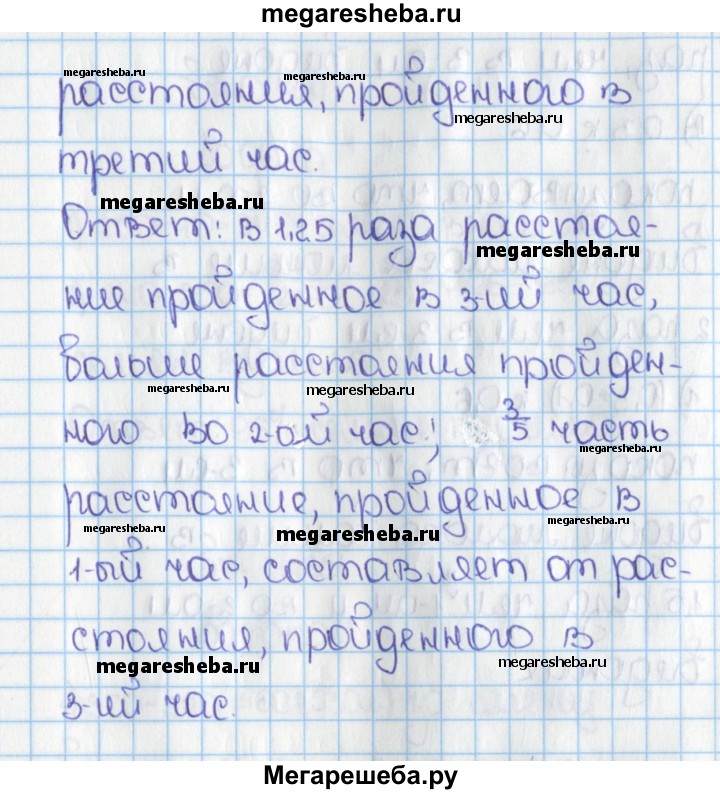 megaresheba.ru
megaresheba.ru megaresheba.ru
расстояния, пройденного в
megaresheba.ru
третий час.
megaresheba.ru
Ответ: в 1,25 раза расстоя-
megaresheba.ru
ние пройденное в 3-ий час,
больше расстояния пройден-
megaresheba.ru megaresheba.ru
ного во 2-ой час; 3/5 часть
megaresheba.ru
расстояние, пройденное в
megaresheba.ru megaresheba.ru megaresheba.ru
1-ый час, составляет от рас-
стояния, пройденного в
megaresheba.ru megaresheba.ru
3-ий час.
Мегарешеба.ру